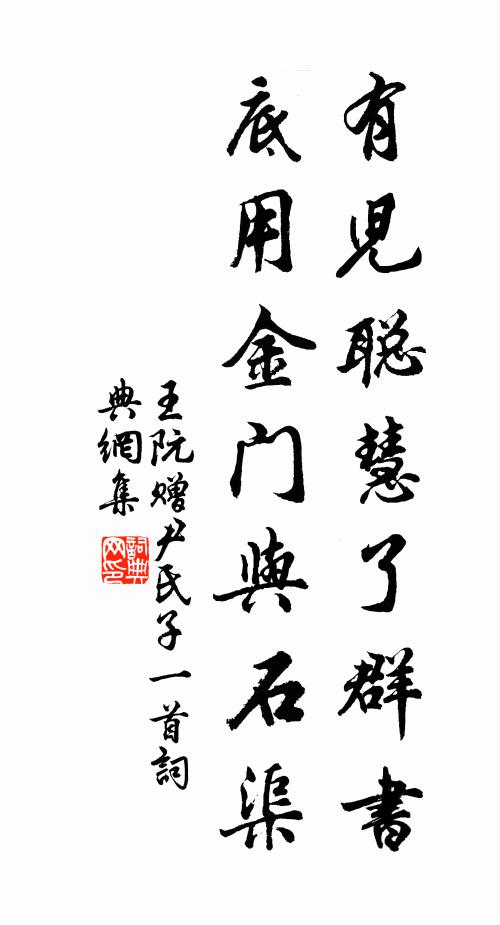 有児聪慧了群書
底用金门與石渠
王阮赠尹氏子一首詞
典網集
詞典
网印